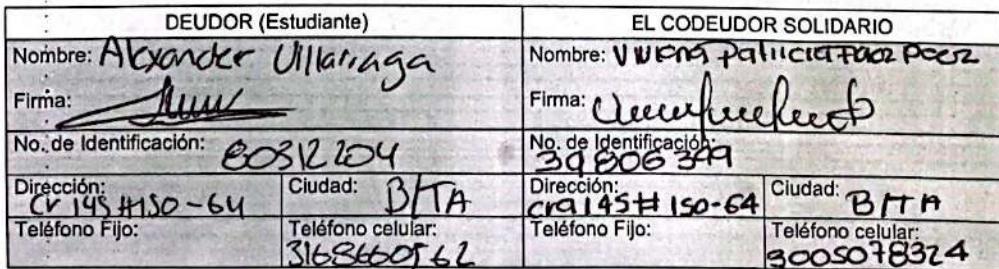 DEUDOR (Estudiante)
EL CODEUDOR SOLIDARIO
Nombre: Alexander Villarraga
Nombre: Viviana Patricia Paez Paez
Firma:
Firma:
No. de Identificación: 80312204
No. de Identificación: 39806399
Dirección: Cr 145 #150-64
Ciudad: B/TA
Dirección: cra 145 # 150-64
Ciudad: B/TA
Teléfono Fijo:
Teléfono celular: 3168660562
Teléfono Fijo:
Teléfono celular: 3005078324